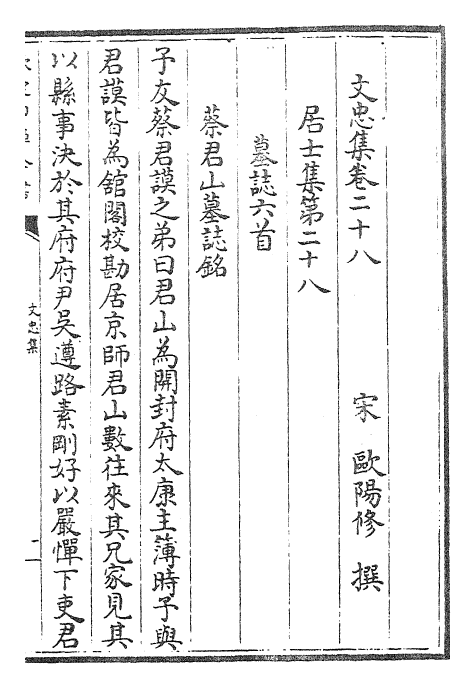 文忠集卷二十八
宋 歐陽修 撰
居士集第二十八
墓誌六首
蔡君山墓誌銘
予友蔡君謨之弟曰君山為開封府太康主簿時予與
君謨皆為舘閣校勘居京師君山數往來其兄家見其
以縣事決於其府府尹吳遵路素剛好以嚴憚下吏君
文忠集